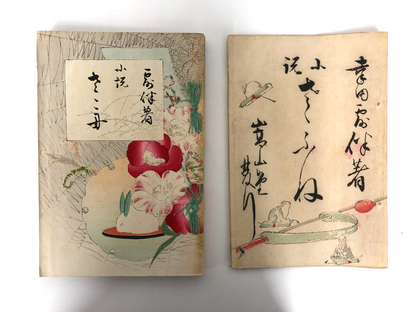 露伴著
小説
さゝ舟
幸田露伴著
小説
さゝふね
嵩山堂
発行